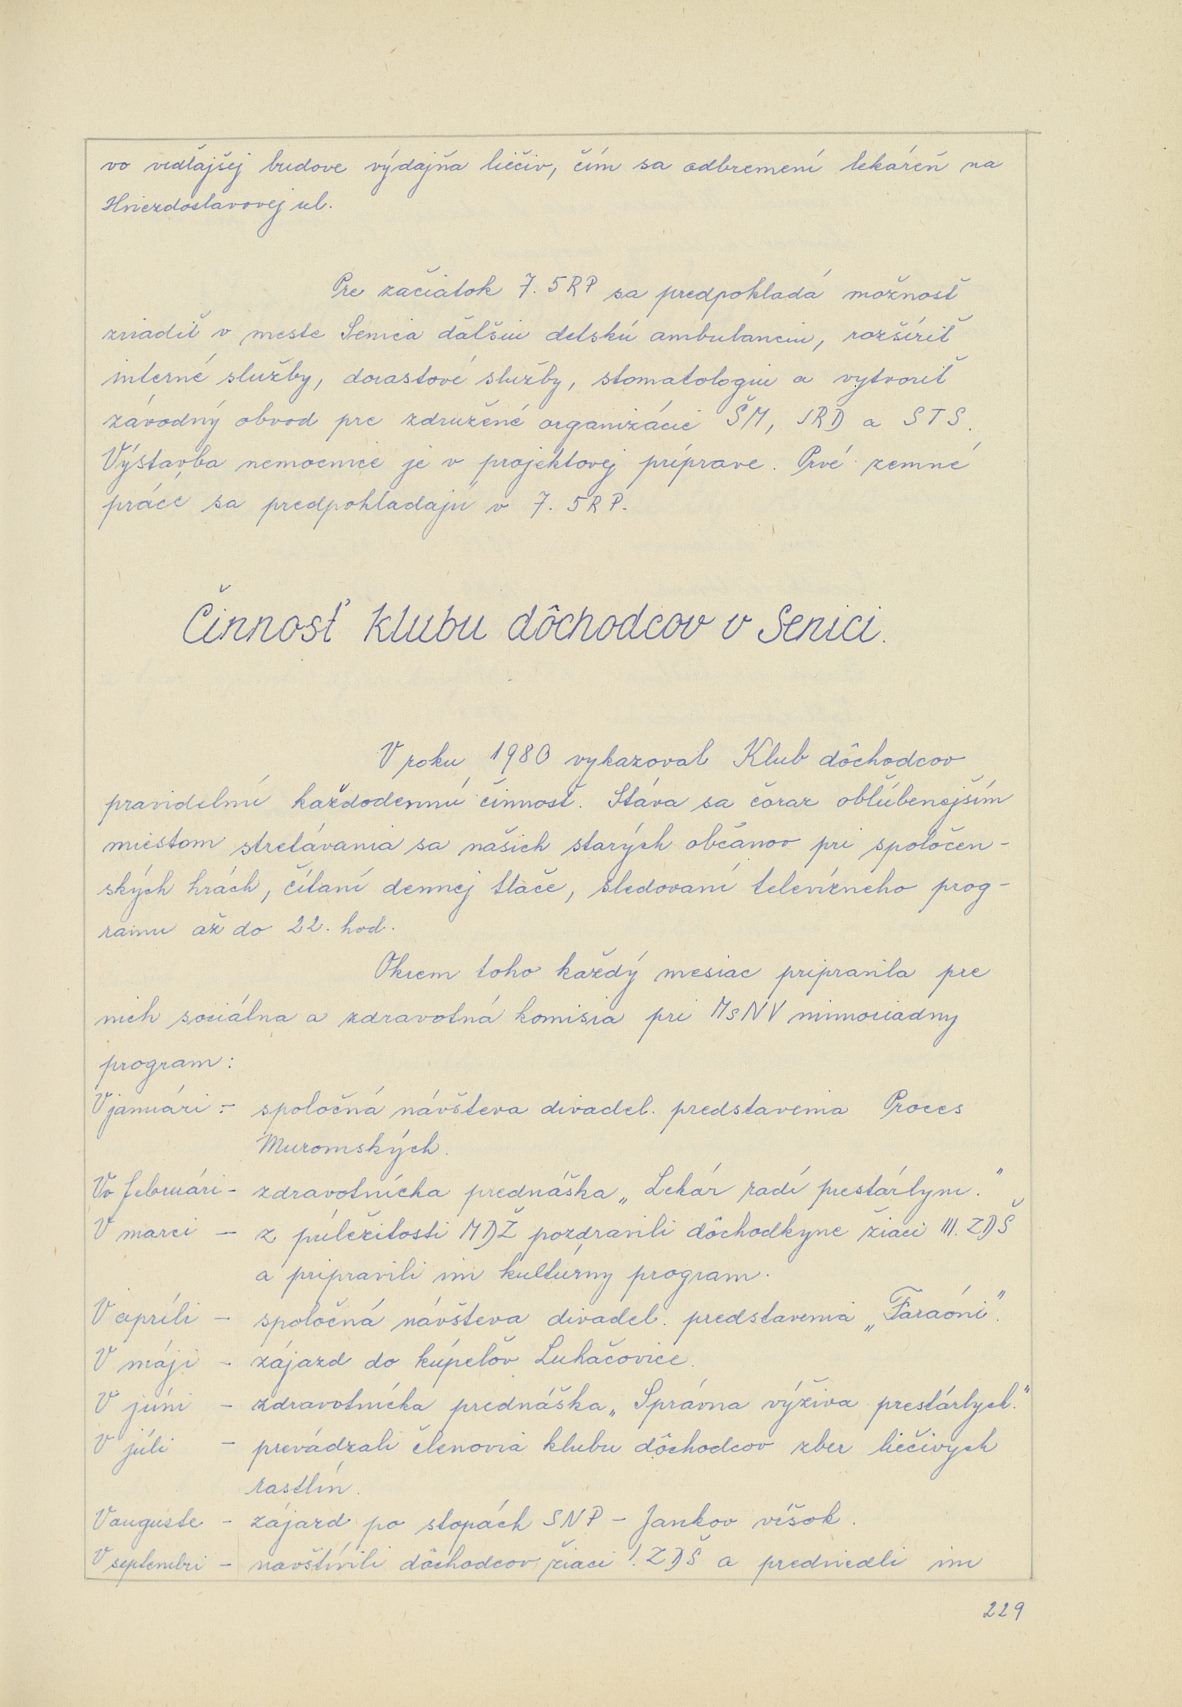 vo vedľajšej budove výdajňa liečiv, čím sa odbremení lekáreň na
Hviezdoslavovej ul.
Pre začiatok 7. 5RP sa predpokladá možnosť
zriadiť v meste Senica ďalšiu detskú ambulanciu, rozšíriť
interné služby, dorastové služby, stomatologiu a vytvoriť
závodný obvod pre združené organizácie ŠM, JRD a STS.
Výstavba nemocnice je v projektovej príprave. Prvé zemné
práce sa predpokladajú v 7. 5RP.
Činnosť klubu dôchodcov v Senici.
V roku 1980 vykazoval Klub dôchodcov
pravidelnú každodennú činnosť. Stáva sa čoraz obľúbenejším
miestom stretávania sa našich starých občanov pri spoločen-
ských hrách, čítaní dennej tlače, sledovaní televízneho prog-
ramu až do 22. hod.
Okrem toho každý mesiac pripravila pre
nich sociálna a zdravotná komisia pri MsNV mimoriadny
program:
V januári :- spoločná návšteva divadel. predstavenia Proces
Muromských.
Vo februári - zdravotnícka prednáška „Lekár radí prestárlym."
V marci - z príležitosti MDŽ pozdravili dôchodkyne žiaci III. ZDŠ
a pripravili im kultúrny program.
V apríli - spoločná návšteva divadel. predstavenia „Faraóni".
V máji - zájazd do kúpeľov Luhačovice.
V júni - zdravotnícka prednáška „Správna výživa prestárlych."
V júli - prevádzali členovia klubu dôchodcov zber liečivých
rastlín.
V auguste - zájazd po stopách SNP - Jankov víšok.
V septembri - navštívili dôchodcov žiaci I. ZDŠ a predniedli im
229